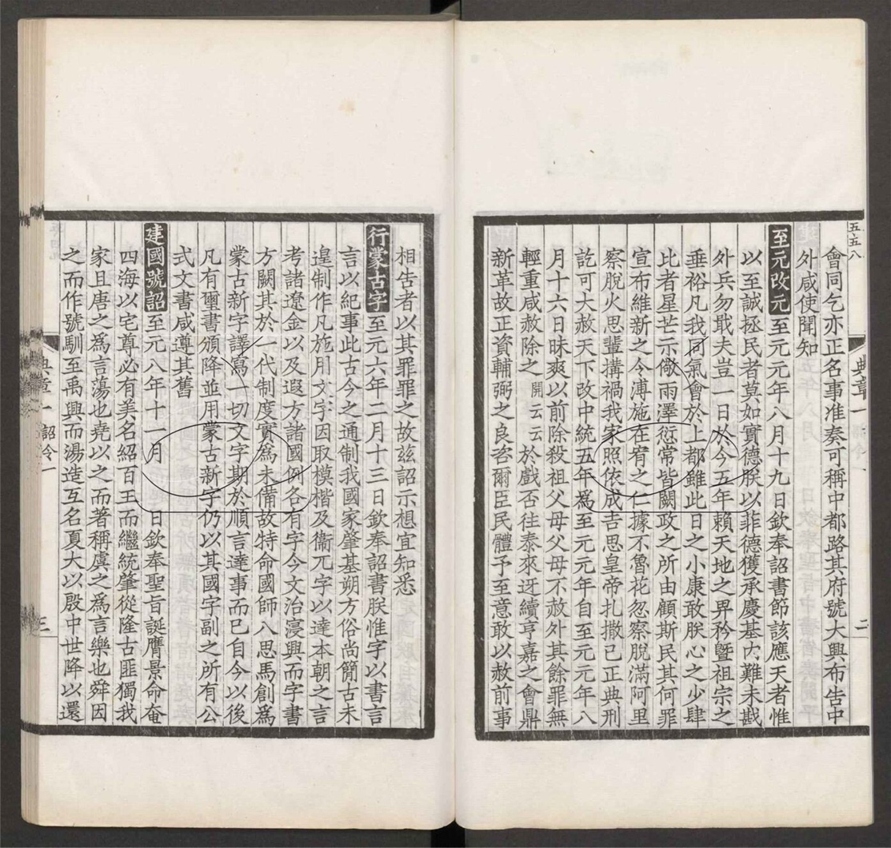 五五八
會同乞亦正名事准奏可稱中都路其府號大興布告中
外咸使聞知
至元改元至元元年八月十九日欽奉詔書節該應天者惟
以至誠拯民者莫如實德朕以菲德獲承慶基內難未戡
外兵勿戢夫豈一日於今五年賴天地之畀矜暨祖宗之
垂裕凡我同氣會於上都雖此日之小康敢朕心之少肆
比者星芒示儆雨澤愆常皆闕政之所由顧斯民其何罪
宣布維新之令溥施在宥之仁據不魯花忽察脫滿阿里
察脫火思輩搆禍我家照依成吉思皇帝扎撒已正典刑
訖可大赦天下改中統五年為至元元年自至元元年八
月十六日昧爽以前除殺祖父母父母不赦外其餘罪無
輕重咸赦除之開云云於戲否往泰來迓續亨嘉之會鼎
新革故正資輔弼之良咨爾臣民體予至意敢以赦前事
典章一 詔令一 二
相告者以其罪罪之故茲詔示想宜知悉
行蒙古字至元六年二月十三日欽奉詔書朕惟字以書言
言以紀事此古今之通制我國家肇基朔方俗尚簡古未
遑制作凡施用文字因取模楷及衞兀字以達本朝之言
考諸遼金以及遐方諸國例各有字今文治寖興而字書
方闕其於一代制度實為未備故特命國師八思馬創為
蒙古新字譯寫一切文字期於順言達事而已自今以後
凡有璽書頒降並用蒙古新字仍以其國字副之所有公
式文書咸遵其舊
建國號詔至元八年十一月 日欽奉聖旨誕膺景命奄
四海以宅尊必有美名紹百王而繼統肇從隆古匪獨我
家且唐之為言蕩也堯以之而著稱虞之為言樂也舜因
之而作號馴至禹興而湯造互名夏大以殷中世降以還
典章一 詔令一 三